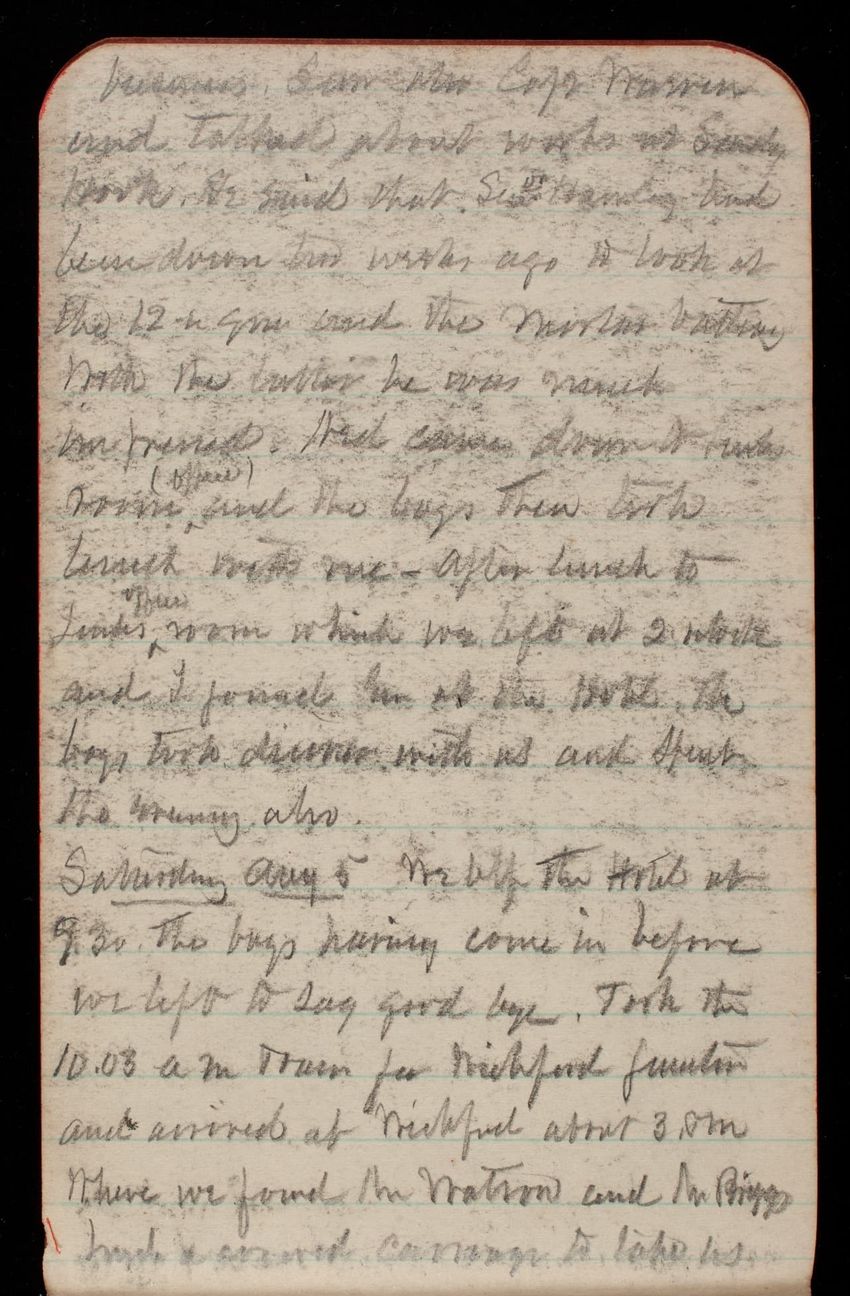 business. Saw also Capt Warren
and talked about works at Sandy
Hook. He said that Senr Hawley had
been down two weeks ago to look at
the 12 in gun and the Mortar battery
With the latter he was much
impressed. came down to
room (office) and the boys then took
lunch with me - After lunch to
office room which we left at 2 oclock
and I joined her at the Hotel. The
boys took dinner with us and spent
the evening also.
Saturday Aug 5 We left the Hotel at
9.30. The boys having come in before
we left to say good bye. Took the
10.03 a m train for Wickford Junction
and arrived at Wickford about 3 P m
Where we found Mr Watson and Mr Briggs
a covered carriage to take us